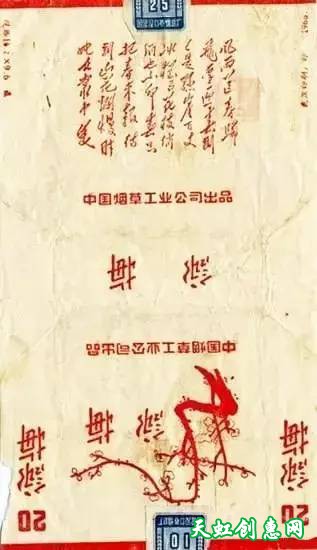 25
风雨送春归
飞雪迎春到
已是悬崖百丈
冰犹有花枝俏
俏也不争春只
把春来报待
到山花烂漫时
她在丛中笑
中国烟草工业公司出品
詠梅
中国烟草工业公司出品
詠梅
詠梅
詠梅
20
20
10
天虹创意网